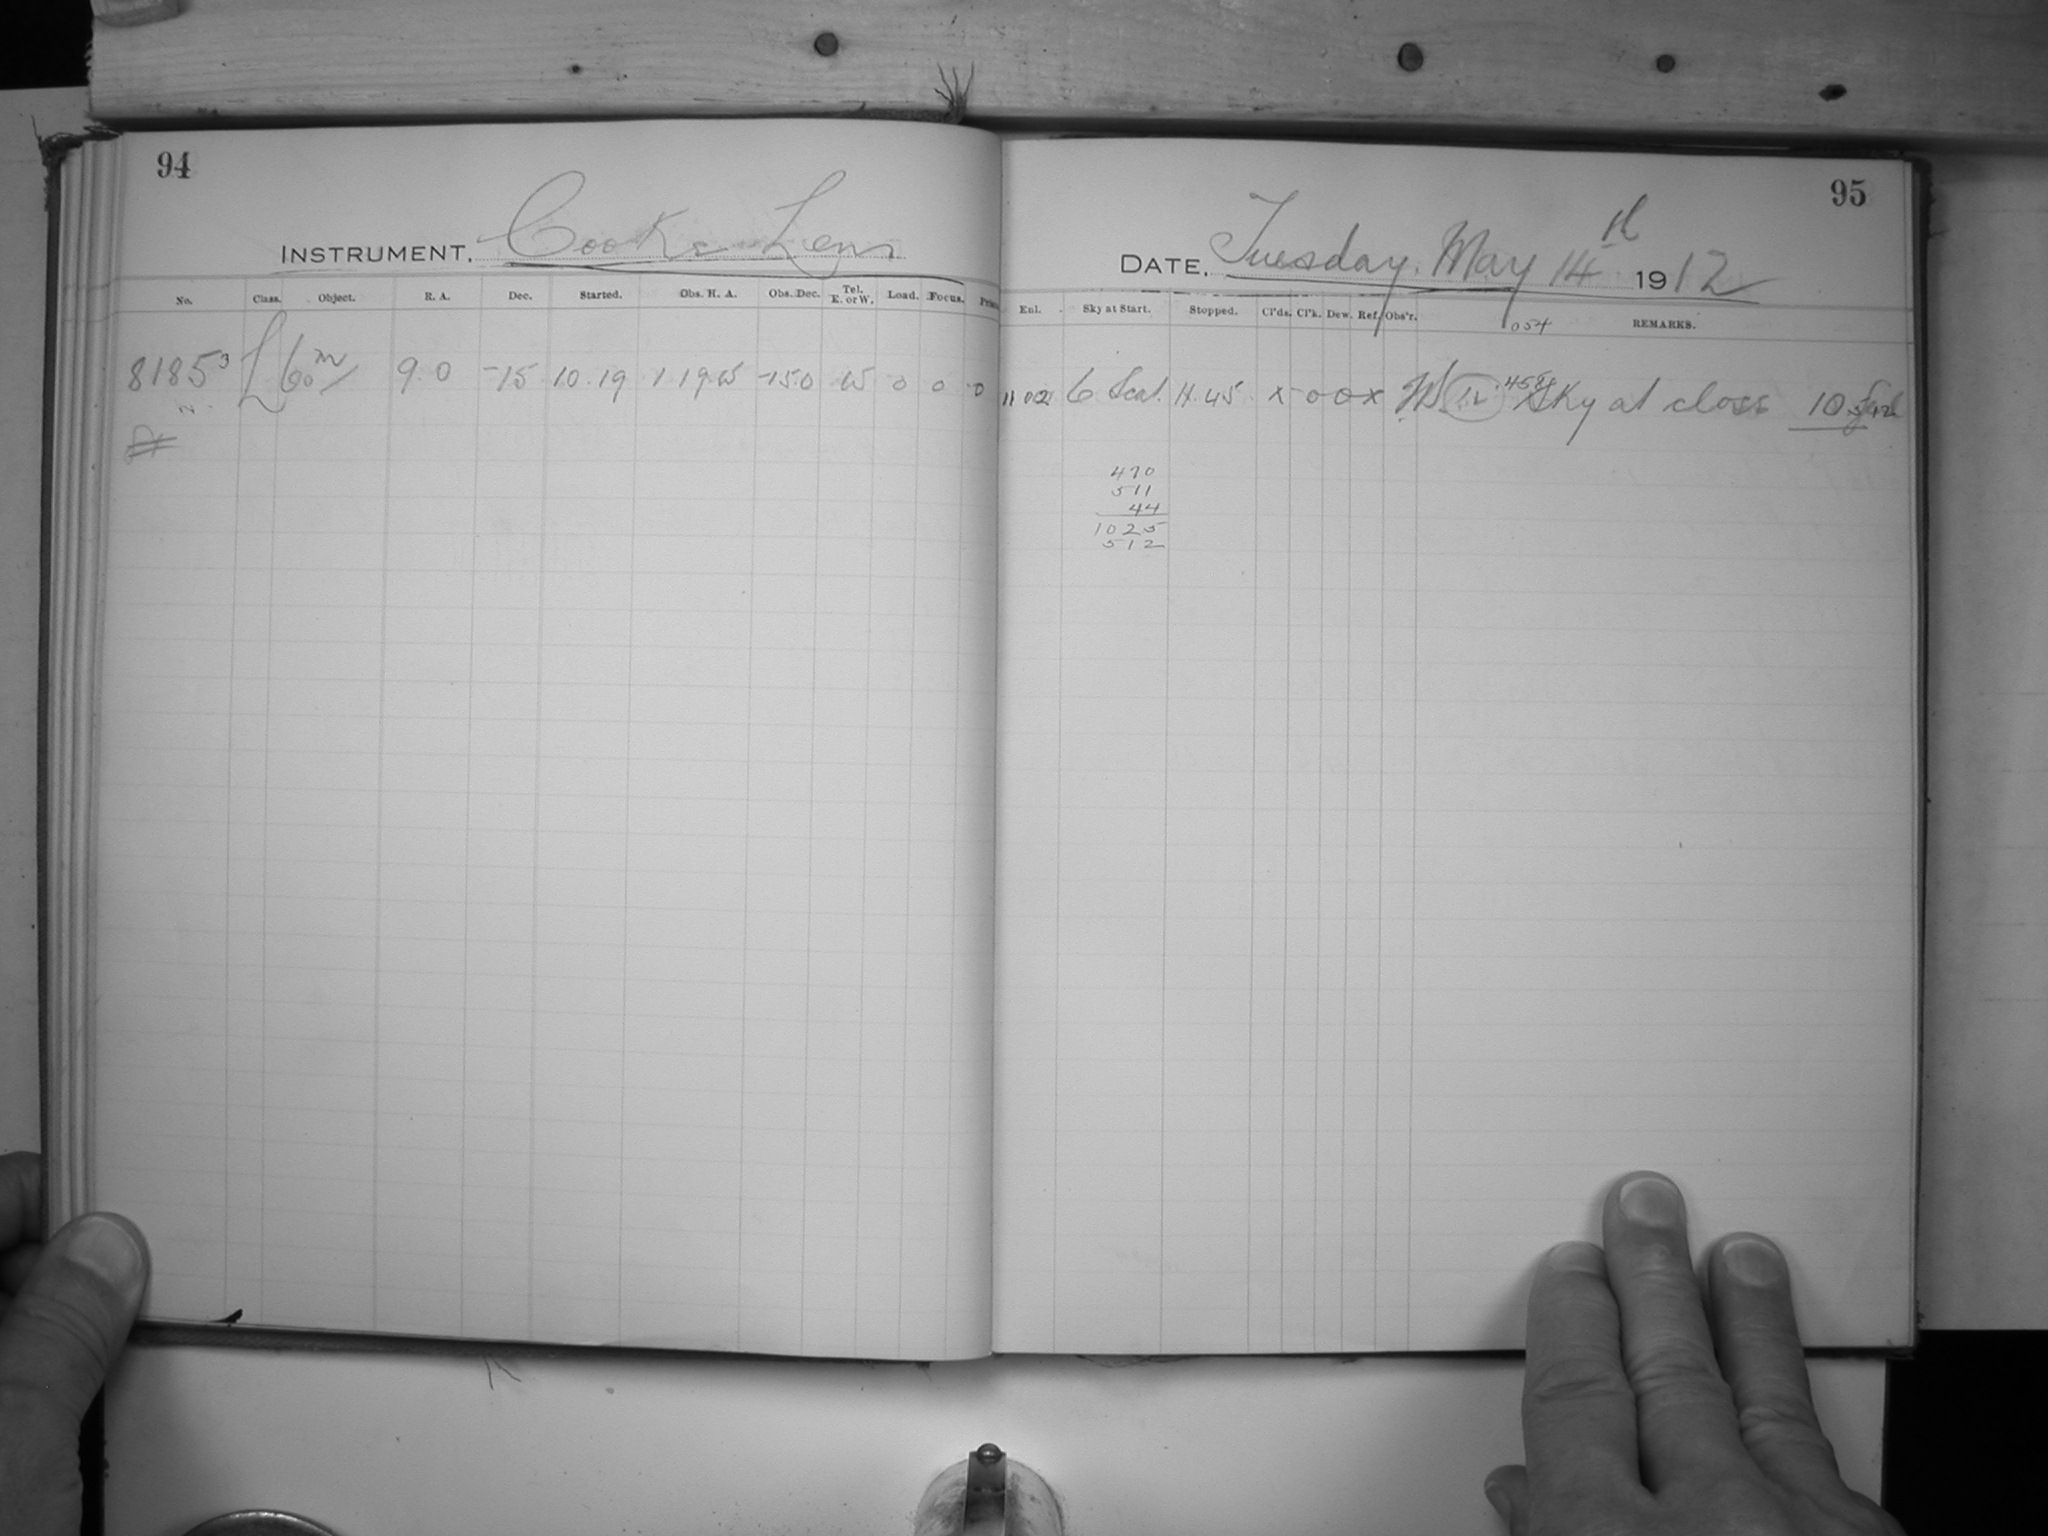 94
INSTRUMENT, Cooke Lens
No. Class. Object. R. A. Dec. Started. Obs. H. A. Obs. Dec. Tel. E. or W. Load. Focus.
8185 3 L 60 m 9. 0 -15 10. 19 1 19 W -15.0 W 0 0 0
95
DATE, Tuesday, May 14th 1912
Enl. Sky at Start. Stopped. Cl'ds. Cl'k. Dew. Ref. Obs'r. REMARKS.
054
6 11.45 x 0 0 x 12 Sky at close 10
470
511
44
1025
512